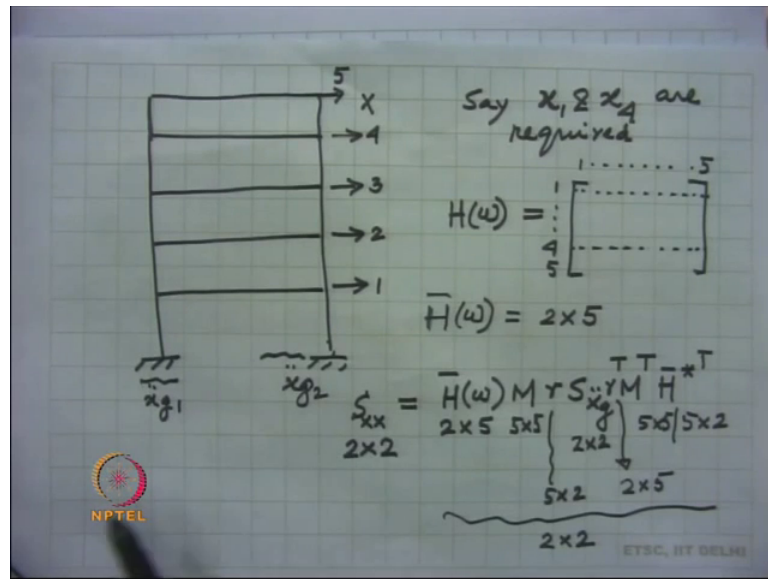 5
X
4
3
2
1
ẍg1
ẍg2
Say x1 & x4 are
required
1 . . . . . . . 5
H(ω) =
1
4
5
H̅(ω) = 2×5
Sxx = H̅(ω) M r Sẍg rT MT H̅*T
2×2
2×5 5×5 2×2 5×5 5×2
5×2 2×5
2×2
NPTEL
ETSC, IIT DELHI